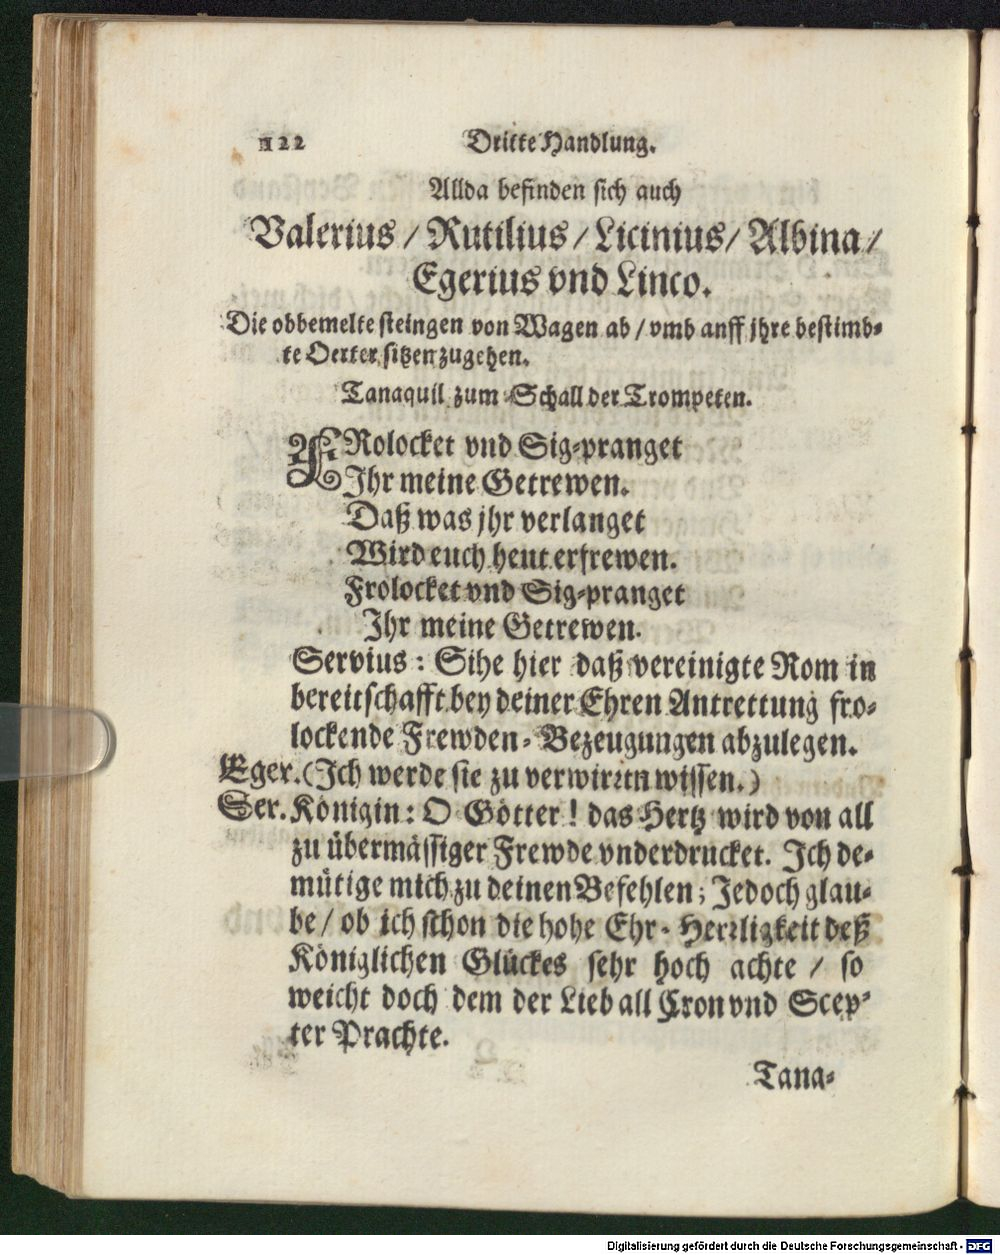 122 Dritte Handlung.
Allda befinden sich auch
Valerius / Rutilius / Licinius / Albina /
Egerius vnd Linco.
Die obbemelte steingen von Wagen ab / vmb anff jhre bestimb-
te Oerter sitzen zugehen.
Tanaquil zum Schall der Trompeten.
FRolocket vnd Sig-pranget
Ihr meine Getrewen.
Daß was jhr verlanget
Wird euch heut erfrewen.
Frolocket vnd Sig-pranget
Ihr meine Getrewen.
Servius: Sihe hier daß vereinigte Rom in
bereitschafft bey deiner Ehren Antrettung fro-
lockende Frewden-Bezeugungen abzulegen.
Eger. (Ich werde sie zu verwirren wissen.)
Ser. Königin: O Götter! das Hertz wird von all
zu übermässiger Frewde vnderdrucket. Ich de-
mütige mich zu deinen Befehlen; Jedoch glau-
be / ob ich schon die hohe Ehr-Herrligkeit deß
Königlichen Glückes sehr hoch achte / so
weicht doch dem der Lieb all Cron vnd Scep-
ter Prachte.
Tana-
Digitalisierung gefördert durch die Deutsche Forschungsgemeinschaft - DFG